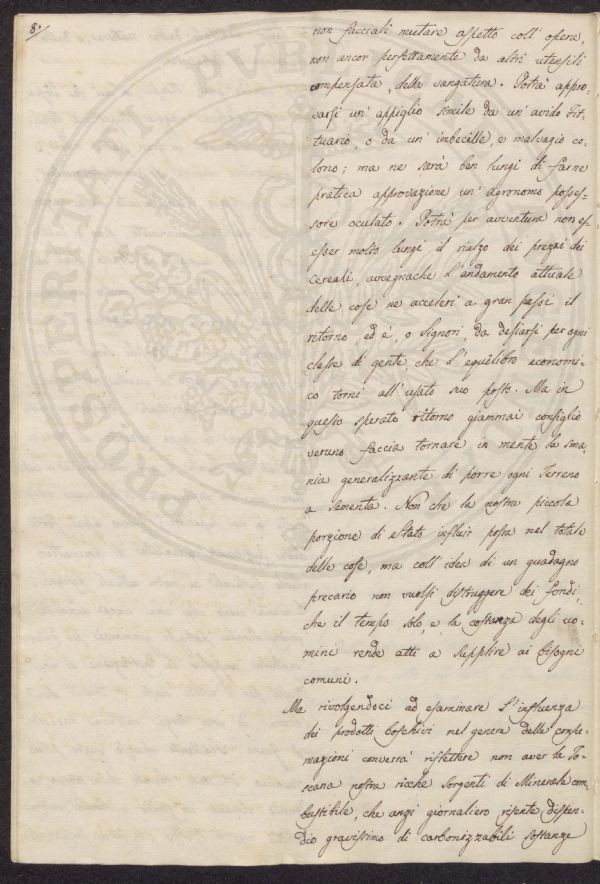 8.
non facciali mutare aspetto coll' opera,
non ancor perfettamente da altri utensili
compensata, della vangatura. Potrà appro-
varsi un' appiglio simile da un' avido Fit-
tuario, o da un' imbecille, e malvagio co-
lono; ma ne sarà ben lungi di farne
pratica approvazione un' Agronomo posses-
sore oculato. Potrà per avventura non es
esser molto lungi il rialzo dei prezzi dei
Cereali, avvegnache l' andamento attuale
delle cose ne acceleri a gran passi il
ritorno, ed é, o Signori, da desiarsi per ogni
classe di gente, che l' equilibro economi-
co torni all' usato suo posto. Ma in
questo sperato ritorno giammai consiglio
veruno faccia tornare in mente la sma,
nia generalizzante di porre ogni Terreno
a sementa. Non che la nostra piccola
porzione di Stato influir possa nel totale
delle cose, ma coll' idea di un guadagno
precario non vuolsi distruggere dei fondi,
che il tempo solo, e la costanza degli uo-
mini rende atti a supplire ai bisogni
comuni.
Ma rivolgendoci ad esaminare l' influenza
dei prodotti boschivi nel genere delle consu-
mazioni converrà riflettere non aver la To-
scana nostra ricche sorgenti di Minerale com
bustibile, che anzi giornaliero risente dispen-
dio gravissimo di carbonizzabili sostanze
PROSPERITATI PUBLICAE